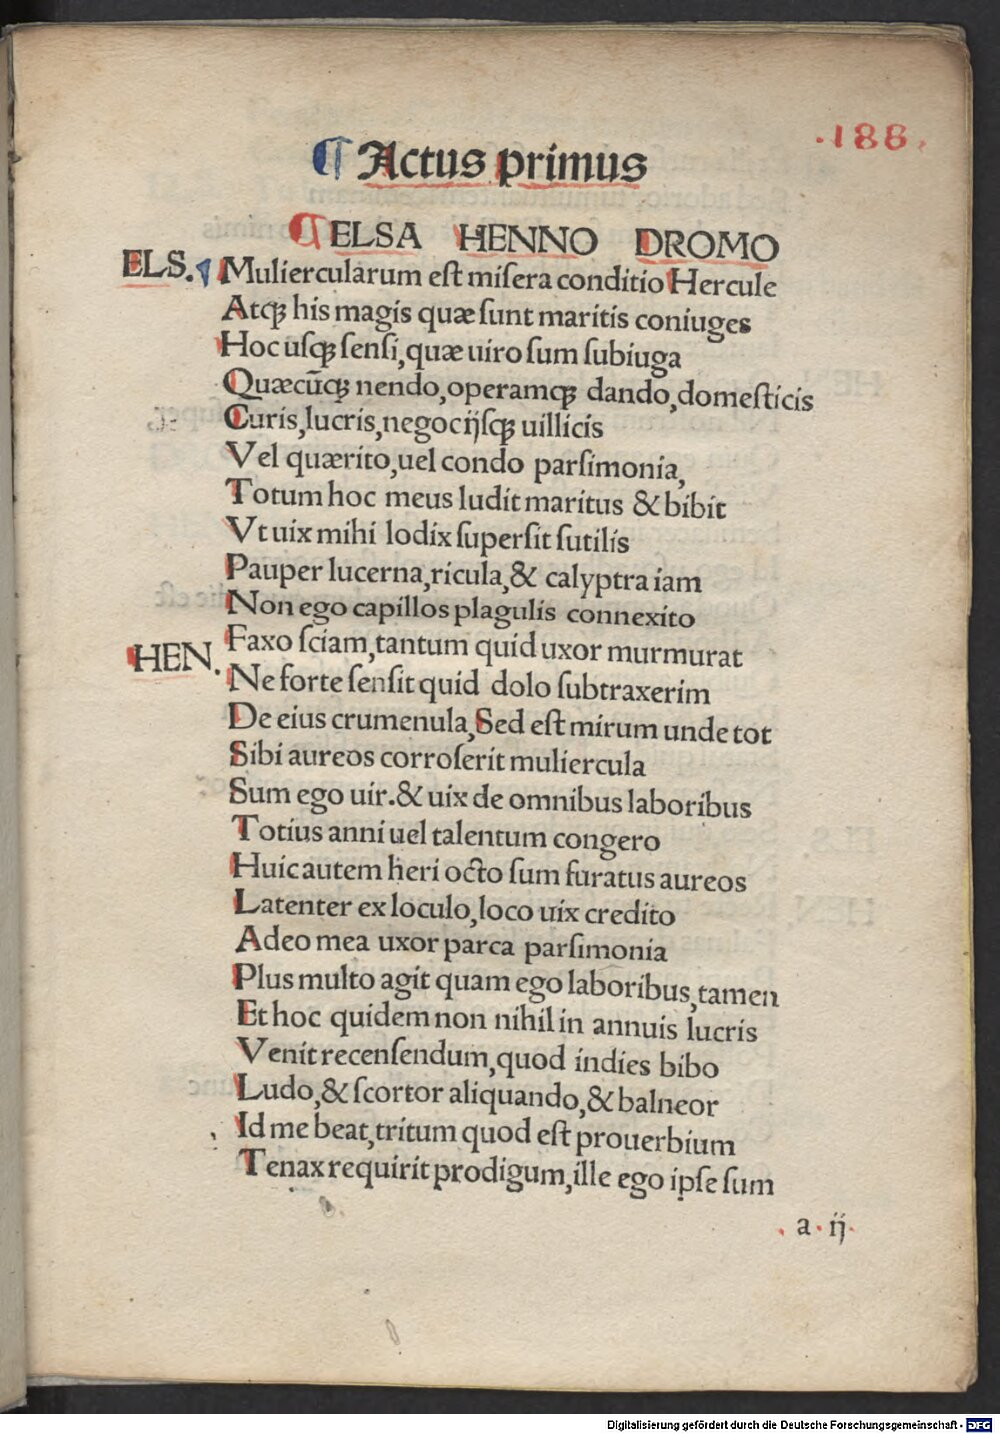 .188.
¶ Actus primus
¶ ELSA HENNO DROMO
ELS. ¶ Muliercularum eſt miſera conditio Hercule
Atqꝫ his magis quæ ſunt maritis coniuges
Hoc uſqꝫ ſenſi, quæ uiro ſum ſubiuga
Quæcũqꝫ nendo, operamqꝫ dando, domeſticis
Curis, lucris, negocijſqꝫ uillicis
Vel quærito, uel condo parſimonia,
Totum hoc meus ludit maritus & bibit
Vt uix mihi lodix ſuperſit ſutilis
Pauper lucerna, ricula, & calyptra iam
Non ego capillos plagulis connexito
HEN. Faxo ſciam, tantum quid uxor murmurat
Ne forte ſenſit quid dolo ſubtraxerim
De eius crumenula, Sed eſt mirum unde tot
Sibi aureos corroſerit muliercula
Sum ego uir. & uix de omnibus laboribus
Totius anni uel talentum congero
Huic autem heri octo ſum furatus aureos
Latenter ex loculo, loco uix credito
Adeo mea uxor parca parſimonia
Plus multo agit quam ego laboribus, tamen
Et hoc quidem non nihil in annuis lucris
Venit recenſendum, quod indies bibo
Ludo, & ſcortor aliquando, & balneor
Id me beat, tritum quod eſt prouerbium
Tenax requirit prodigum, ille ego ipſe ſum
a ij
Digitalisierung gefördert durch die Deutsche Forschungsgemeinschaft - DFG